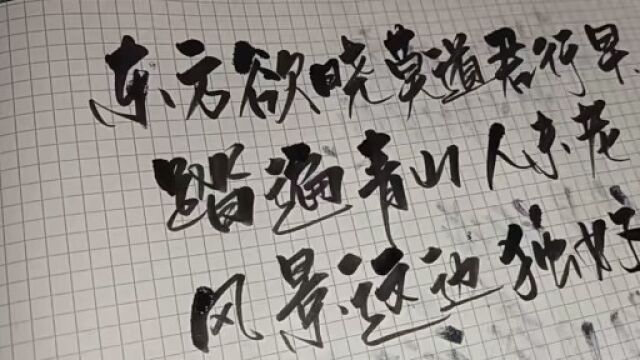 东方欲晓莫道君行早
踏遍青山人未老
风景这边独好